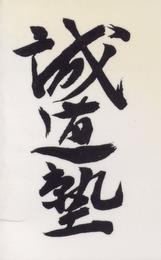 誠道塾